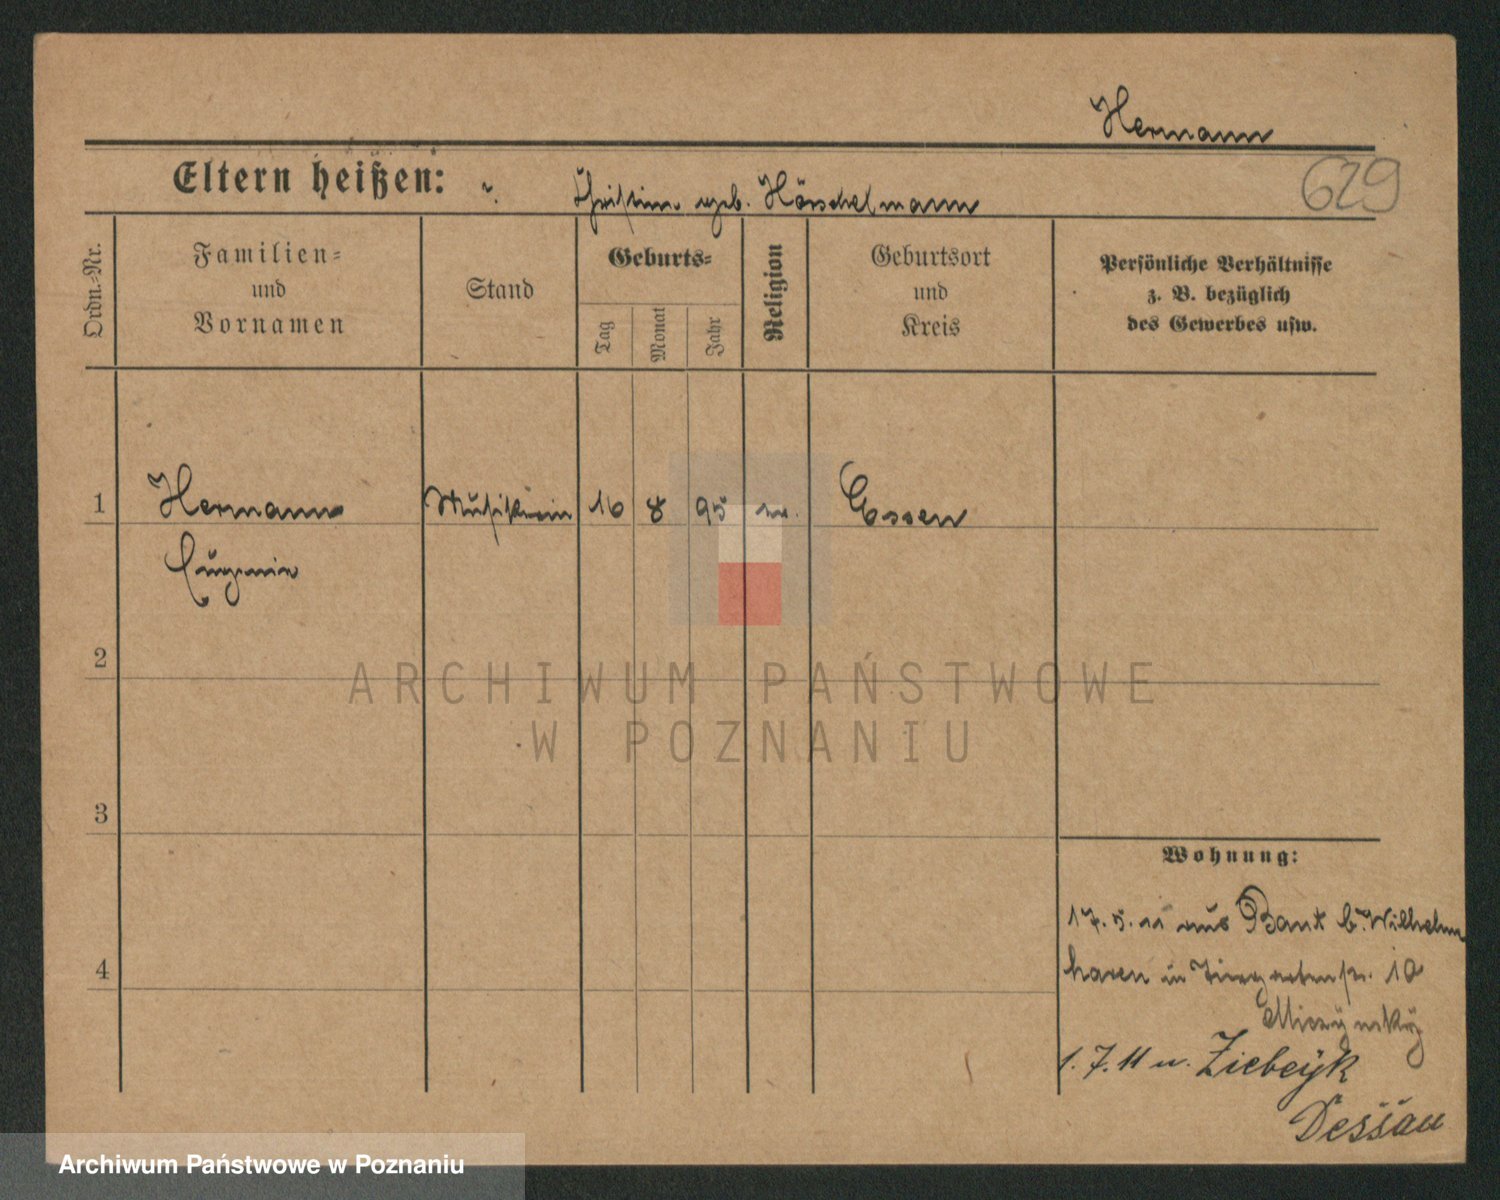 Hermann
Eltern heißen: u. Christine geb. Höschelmann
629
Ordn.-Nr.
Familien=
und
Vornamen
Stand
Geburts=
Tag
Monat
Jahr
Religion
Geburtsort
und
Kreis
Persönliche Verhältnisse
z. B. bezüglich
des Gewerbes usw.
1 Hermann Musikerin 16 8 95 ev. Essen
Eugenie
2
ARCHIWUM PAŃSTWOWE
W POZNANIU
3
Wohnung:
17.5.11 aus Bant b. Wilhelm
haven in Tiergartenstr. 10
4
1.7.11 n. Ziebeyk
Dessau
Archiwum Państwowe w Poznaniu